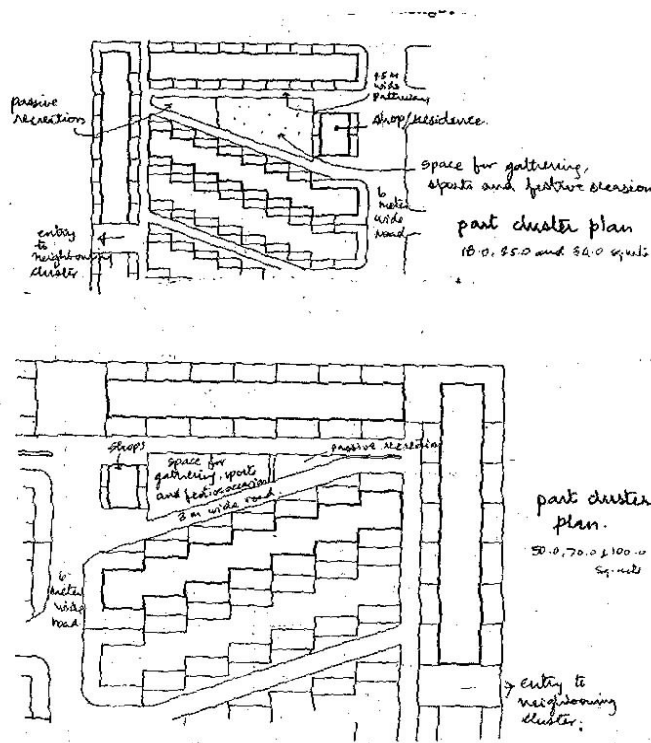 passive
recreation
4.5 m
wide
pathway
shop/residence
space for gathering,
sports and festive occasion
6
meter
wide
road
entry
to
neighbouring
cluster
part cluster plan
18.0, 25.0 and 34.0 sq.mts
shops
space for
gathering, sports
and festive occasion
3 m wide road
passive recreation
part cluster
plan.
50.0, 70.0 & 100.0
sq.mts
6
meter
wide
road
entry to
neighbouring
cluster.